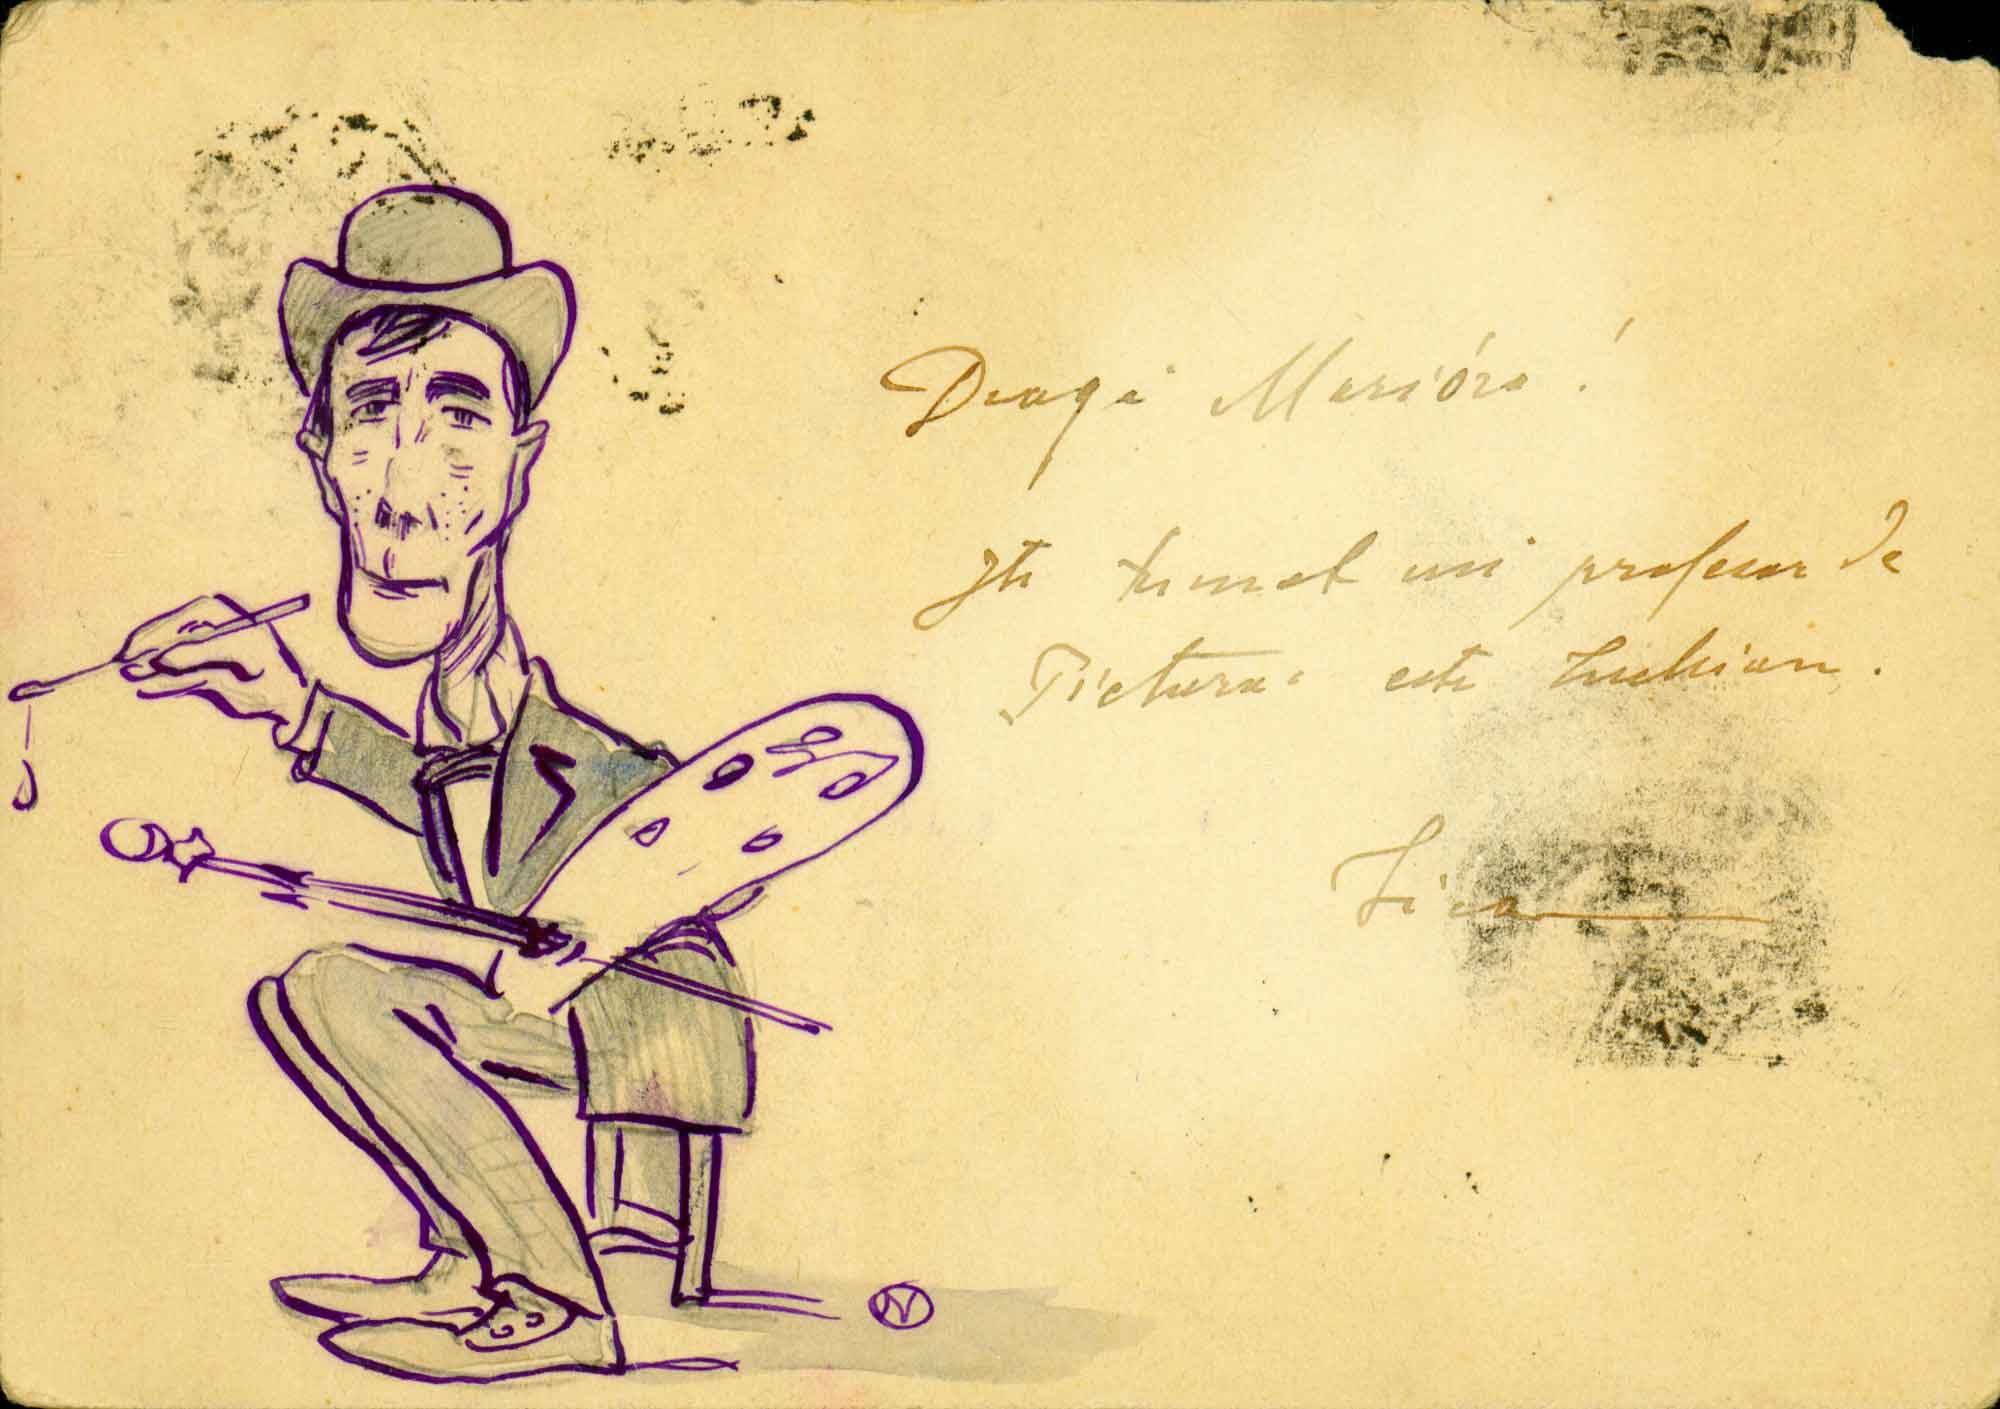 Dragă Marióra!
Iti trimet un profesor de
Pictura: este Luchian.
Lica
N